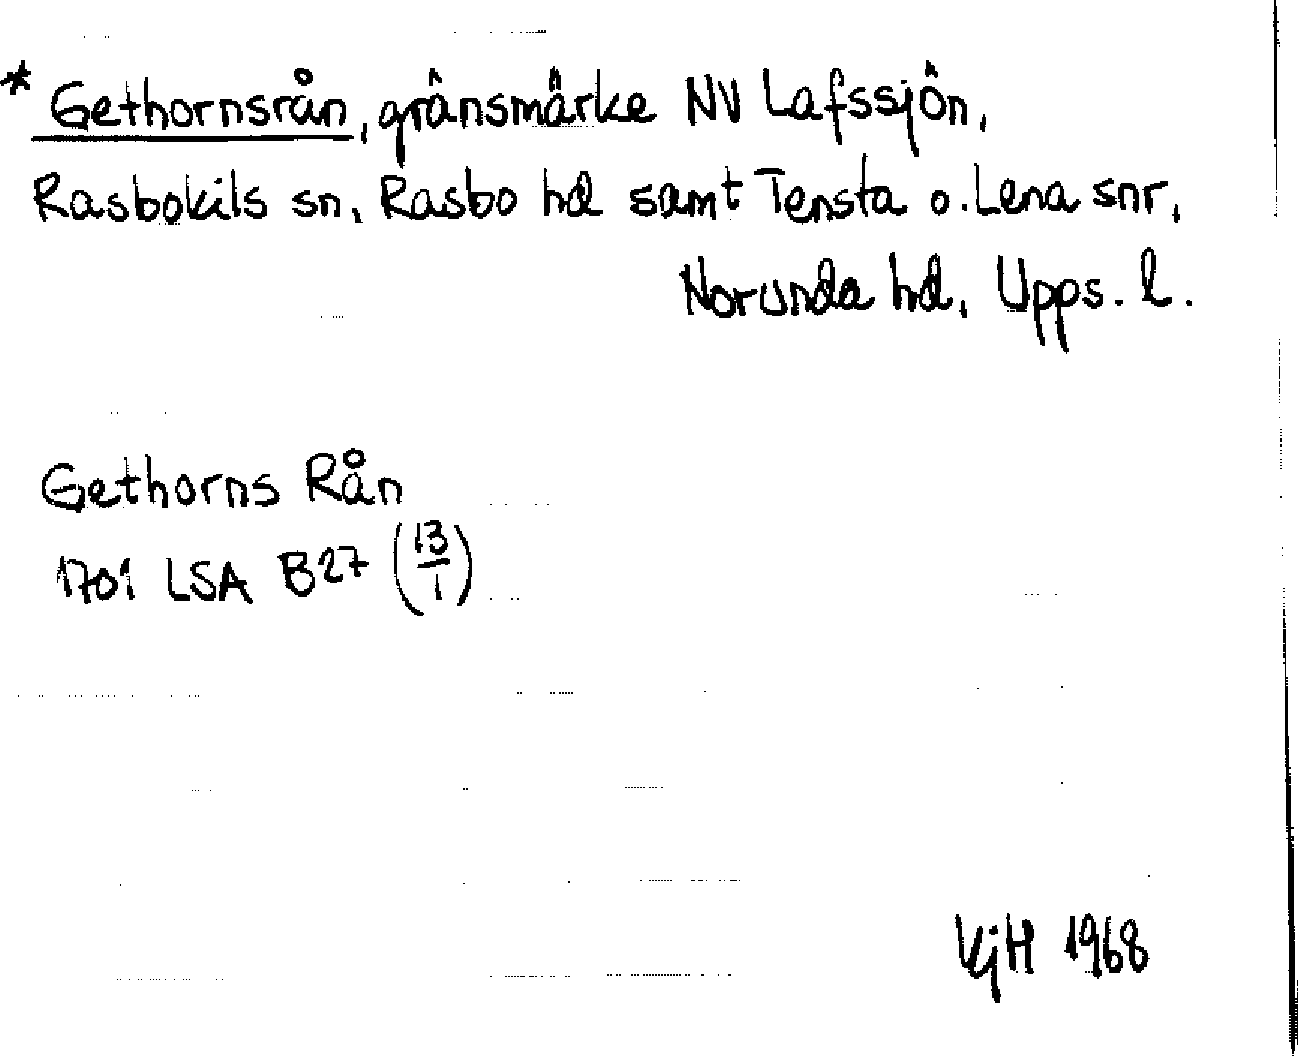 * Gethornsrån, gränsmärke NV Lafssjön,
Rasbokils sn, Rasbo hd samt Tensta o. Lena snr,
Norunda hd, Upps. l.
Gethorns Rån
1701 LSA B27 (13/1)
VjH 1968